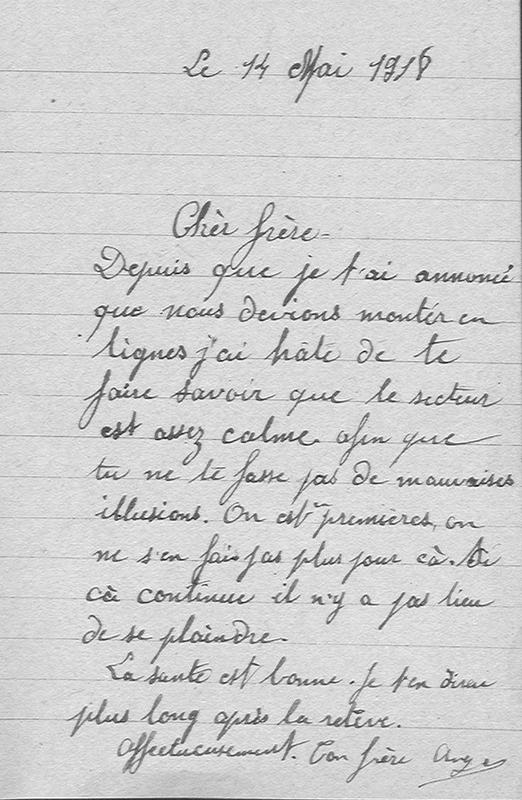 Le 14 Mai 1918
Chèr frère -
Depuis que je t'ai annoncé
que nous devions montér en
lignes j'ai hâte de te
faire savoir que le secteur
est assez calme. afin que
tu ne te fasse pas de mauvaises
illusions. On est premières, on
ne s'en fais pas plus pour cà. Si
cà continue il n'y a pas lieu
de se plaindre.
La santé est bonne. Je t'en dirai
plus long après la relève.
Affectueusement. Ton frère Ange